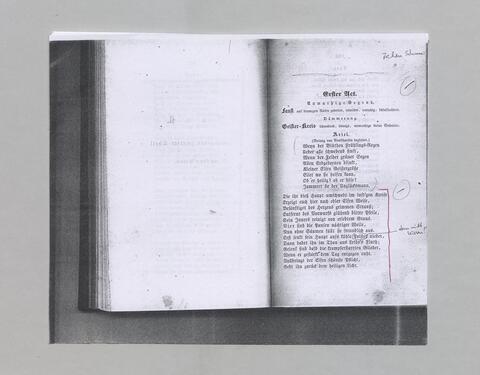 Erster Act.
Anmuthige Gegend.
Faust auf blumigen Rasen gebettet, ermüdet, unruhig, schlafsuchend.
Dämmerung.
Geister-Kreis schwebend, bewegt, anmuthige kleine Gestalten.
Ariel.
(Gesang von Aeolsharfen begleitet.)
Wenn der Blüthen Frühlings-Regen
Ueber alle schwebend sinkt,
Wenn der Felder grüner Segen
Allen Erdgebornen blinkt,
Kleiner Elfen Geistergröße
Eilet wo sie helfen kann,
Ob er heilig? ob er böse?
Jammert sie der Unglücksmann.
Die ihr dieß Haupt umschwebt im luft'gen Kreise,
Erzeigt euch hier nach edler Elfen Weise,
Besänftiget des Herzens grimmen Strauß;
Entfernt des Vorwurfs glühend bittre Pfeile,
Sein Innres reinigt von erlebtem Graus.
Vier sind die Pausen nächtiger Weile,
Nun ohne Säumen füllt sie freundlich aus.
Erst senkt sein Haupt aufs kühle Polster nieder,
Dann badet ihn im Thau aus Lethe's Fluth;
Gelenk sind bald die krampferstarrten Glieder,
Wenn er gestärkt dem Tag entgegen ruht.
Vollbringt der Elfen schönste Pflicht,
Gebt ihn zurück dem heiligen Licht.